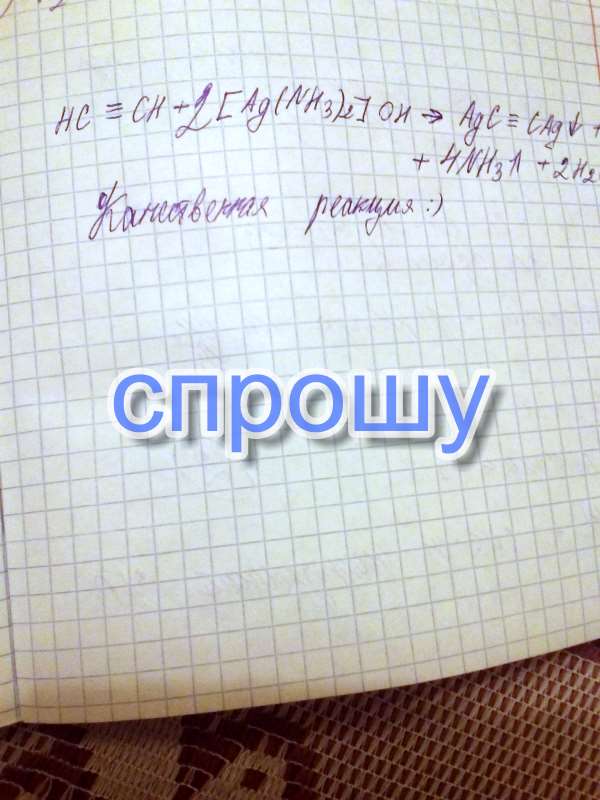 HC ≡ CH + 2 [Ag(NH3)2] OH → AgC ≡ CAg↓ +
+ 4NH3↑ + 2H2
Качественная реакция :)
спрошу